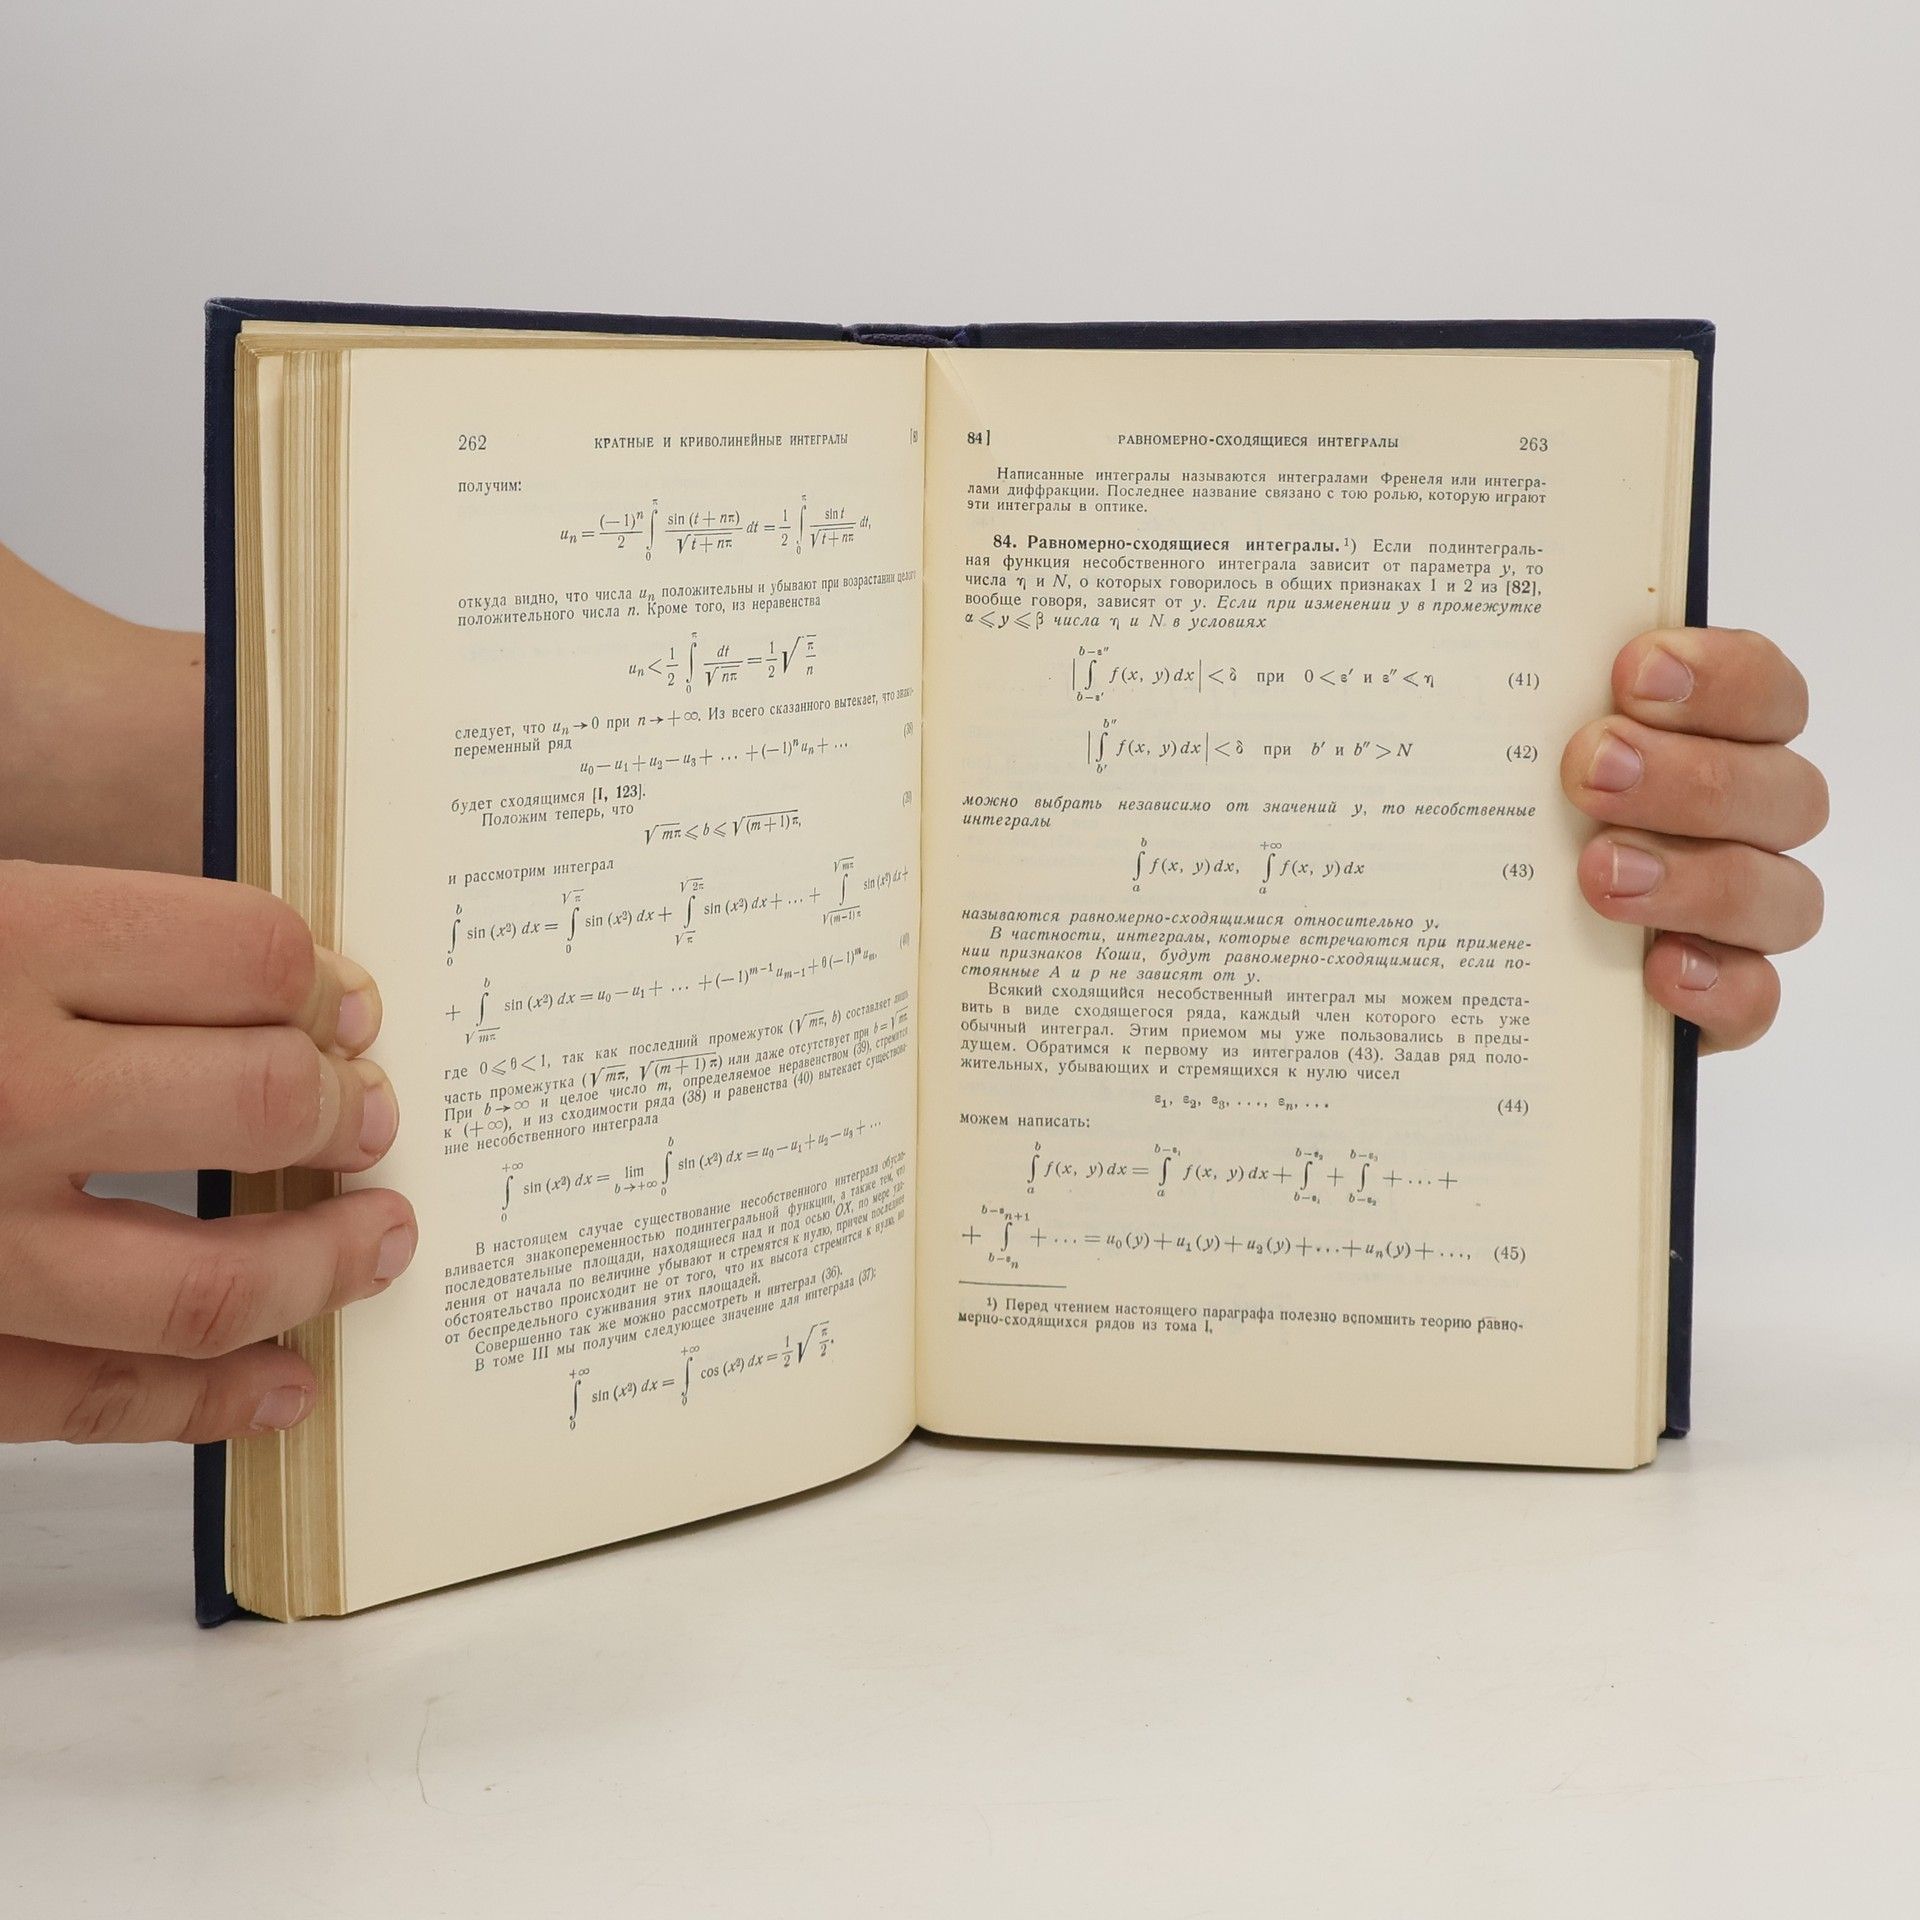 262 КРАТНЫЕ И КРИВОЛИНЕЙНЫЕ ИНТЕГРАЛЫ
получим:
uₙ = (—1)ⁿ/2 ∫₀^π sin (t + nπ)/√(t + nπ) dt = 1/2 ∫₀^π sin t/√(t + nπ) dt,
откуда видно, что числа uₙ положительны и убывают при возрастании целого
положительного числа n. Кроме того, из неравенства
uₙ < 1/2 ∫₀^π dt/√(nπ) = 1/2 √(π/n)
следует, что uₙ → 0 при n → +∞. Из всего сказанного вытекает, что знако-
переменный ряд
u₀ — u₁ + u₂ — u₃ + ... + (—1)ⁿ uₙ + ... (38)
будет сходящимся [I, 123].
Положим теперь, что
√(mπ) ⩽ b ⩽ √((m + 1) π), (39)
и рассмотрим интеграл
∫₀^b sin (x²) dx = ∫₀^√π sin (x²) dx + ∫_√π^√(2π) sin (x²) dx + ... + ∫_√((m—1)π)^√(mπ) sin (x²) dx +
+ ∫_√(mπ)^b sin (x²) dx = u₀ — u₁ + ... + (—1)ᵐ⁻¹ uₘ₋₁ + θ (—1)ᵐ uₘ, (40)
где 0 ⩽ θ < 1, так как последний промежуток (√(mπ), b) составляет лишь
часть промежутка (√(mπ), √((m + 1) π)) или даже отсутствует при b = √(mπ.
При b → ∞ и целое число m, определяемое неравенством (39), стремится
к (+ ∞), и из сходимости ряда (38) и равенства (40) вытекает существова-
ние несобственного интеграла
∫₀^+∞ sin (x²) dx = lim_b→+∞ ∫₀^b sin (x²) dx = u₀ — u₁ + u₂ — u₃ + ...
В настоящем случае существование несобственного интеграла обусло-
вливается знакопеременностью подинтегральной функции, а также тем, что
последовательные площади, находящиеся над и под осью OX, по мере уда-
ления от начала по величине убывают и стремятся к нулю, причем последнее
обстоятельство происходит не от того, что их высота стремится к нулю, но
от беспредельного суживания этих площадей.
Совершенно так же можно рассмотреть и интеграл (36).
В томе III мы получим следующее значение для интеграла (37):
∫₀^+∞ sin (x²) dx = ∫₀^+∞ cos (x²) dx = 1/2 √(π/2).
84] РАВНОМЕРНО-СХОДЯЩИЕСЯ ИНТЕГРАЛЫ 263
Написанные интегралы называются интегралами Френеля или интегра-
лами диффракции. Последнее название связано с тою ролью, которую играют
эти интегралы в оптике.
84. Равномерно-сходящиеся интегралы.¹) Если подинтеграль-
ная функция несобственного интеграла зависит от параметра y, то
числа η и N, о которых говорилось в общих признаках 1 и 2 из [82],
вообще говоря, зависят от y. Если при изменении y в промежутке
α ⩽ y ⩽ β числа η и N в условиях
|∫_b—ε′^b—ε″ f (x, y) dx| < δ при 0 < ε′ и ε″ ⩽ η (41)
|∫_b′^b″ f (x, y) dx| < δ при b′ и b″ > N (42)
можно выбрать независимо от значений y, то несобственные
интегралы
∫_a^b f (x, y) dx, ∫_a^+∞ f (x, y) dx (43)
называются равномерно-сходящимися относительно y.
В частности, интегралы, которые встречаются при примене-
нии признаков Коши, будут равномерно-сходящимися, если по-
стоянные A и p не зависят от y.
Всякий сходящийся несобственный интеграл мы можем предста-
вить в виде сходящегося ряда, каждый член которого есть уже
обычный интеграл. Этим приемом мы уже пользовались в преды-
дущем. Обратимся к первому из интегралов (43). Задав ряд поло-
жительных, убывающих и стремящихся к нулю чисел
ε₁, ε₂, ε₃, ..., εₙ, ... (44)
можем написать:
∫_a^b f (x, y) dx = ∫_a^b—ε₁ f (x, y) dx + ∫_b—ε₁^b—ε₂ + ∫_b—ε₂^b—ε₃ + ... +
+ ∫_b—εₙ^b—εₙ₊₁ + ... = u₀ (y) + u₁ (y) + u₂ (y) + ... + uₙ (y) + ..., (45)
¹) Перед чтением настоящего параграфа полезно вспомнить теорию равно-
мерно-сходящихся рядов из тома I.